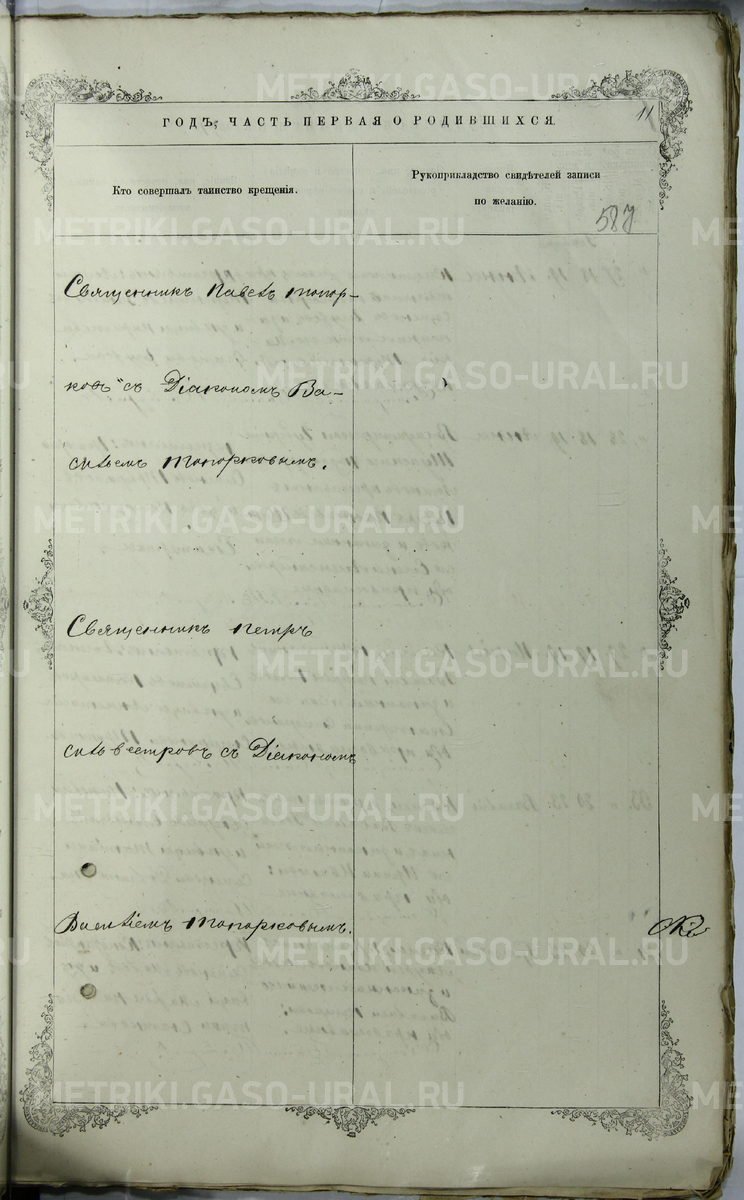 11
ГОДЪ, ЧАСТЬ ПЕРВАЯ О РОДИВШИХСЯ.
Кто совершалъ таинство крещенія.
Рукоприкладство свидѣтелей записи
по желанію.
587
Священникъ Павелъ Топор-
ковъ съ Діакономъ Ва-
сильемъ Топорковымъ.
Священникъ Петръ
Сильвестровъ съ Діакономъ
Василіемъ Топорковымъ.
METRIKI.GASO-URAL.RU